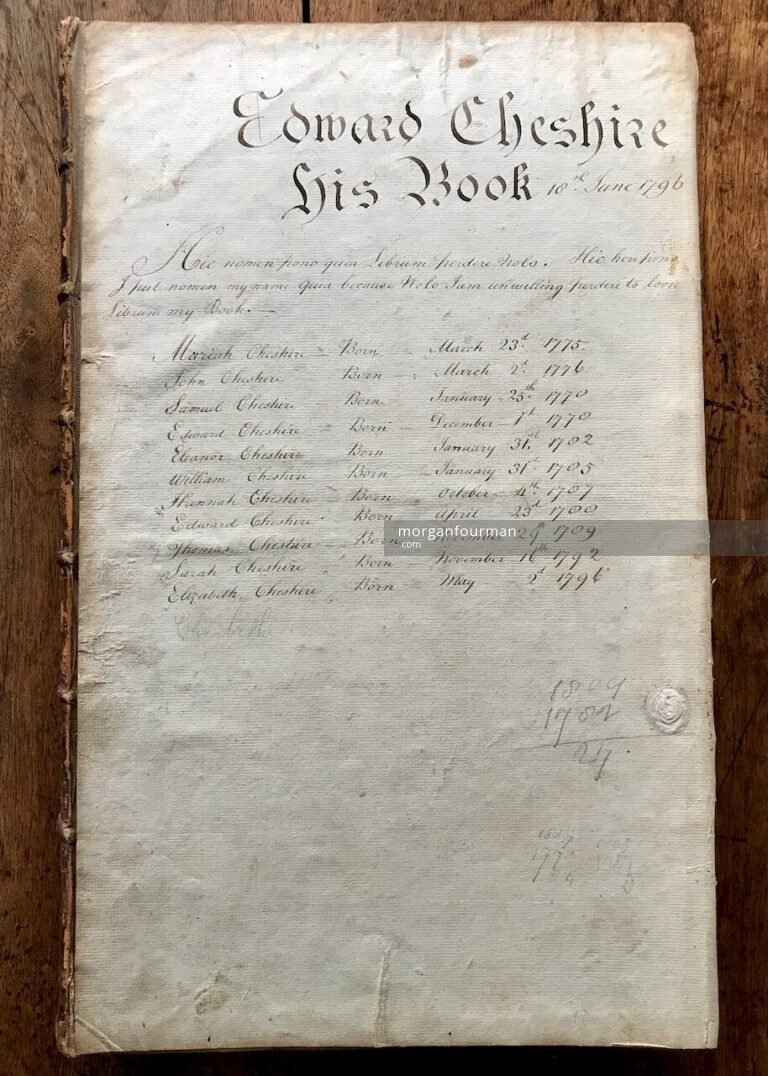 Edward Cheshire
His Book 18th June 1796
Hic nomen pono quia Librum perdere Nolo. Hic here pono
I put nomen my name Quia because Nolo I am unwilling perdere to loose
Librum my Book. —
Mariah Cheshire — Born — March 23d 1775
John Cheshire Born — March 2d 1776
Samuel Cheshire — Born — January 25th 1778
Edward Cheshire — Born — December 1st 1778
Eleanor Cheshire — Born — January 31st 1782
William Cheshire — Born — January 31st 1785
Hannah Cheshire — Born — October 4th 1787
Edward Cheshire — Born — April 23d 1788
Thomas Cheshire — Born 29th 1789
Sarah Cheshire Born — November 16th 1792
Elizabeth Cheshire Born — May 2d 1796
Elizabeth
1809
1782
27
morganfourman
com